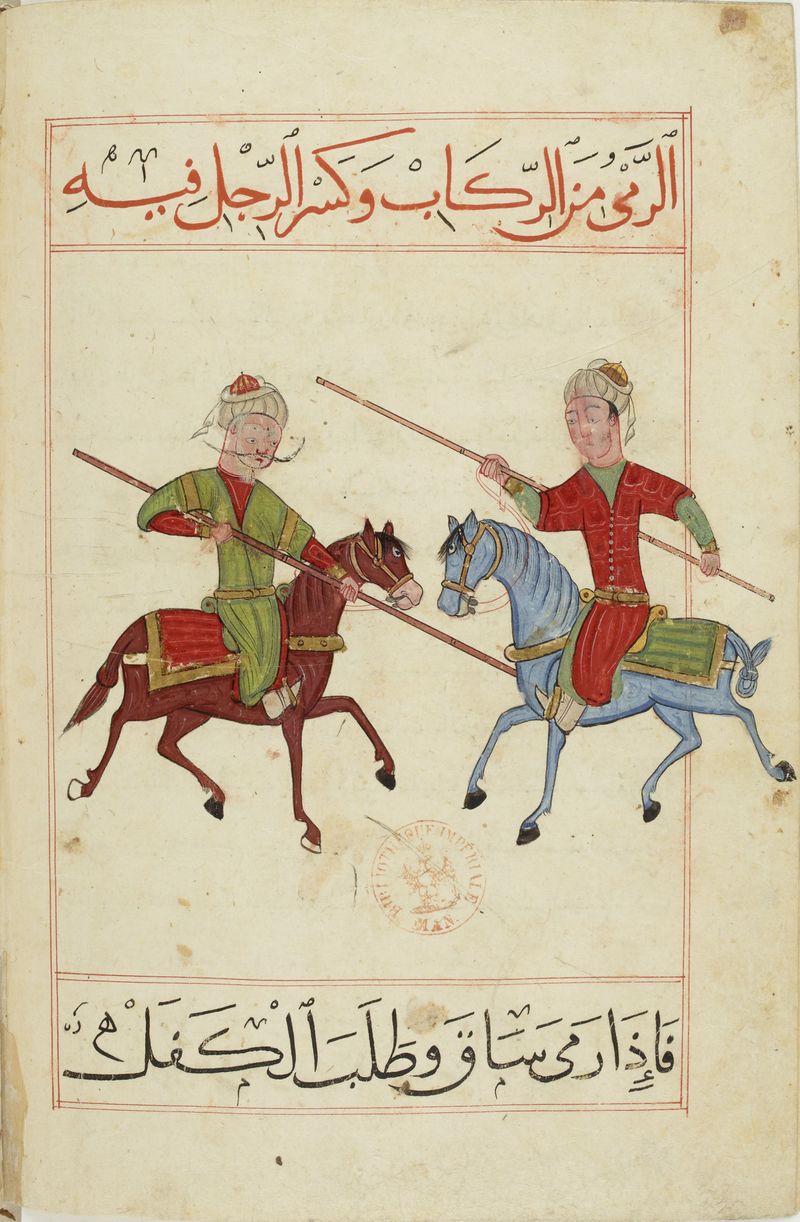 اَلرَّمْيُ مِنَ الرِّكَابْ وَكَسْرِ الرِّجْلِ فِيهِ
BIBLIOTHÈQUE IMPÉRIALE MAN.
فَإِذَا رَمَى سَاقَ وَطَلَبَ الْكَفَلْ